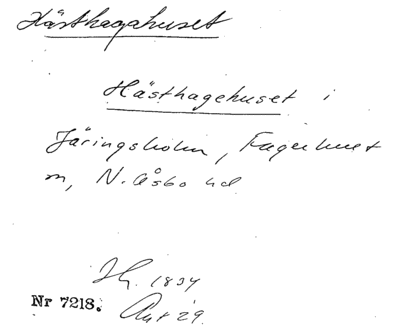 Hästhagahuset
Hästhagehuset i
Järingsholm, Fagerhult
m, N. Åsbo hd
Hf. 1834
Nr 7218. Akt 29.